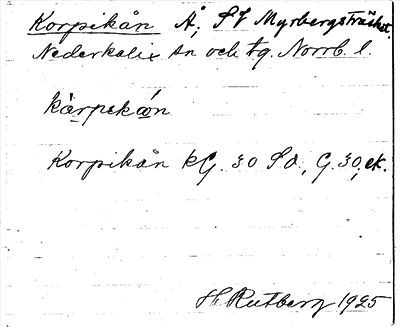 Korpikån Å, SV Myrbergsträsket.
Nederkalix sn och tg. Norrb. l.
kårpekån
Korpikån kG. 30 Sd., G. 30, ek.
H. Rutberg 1925